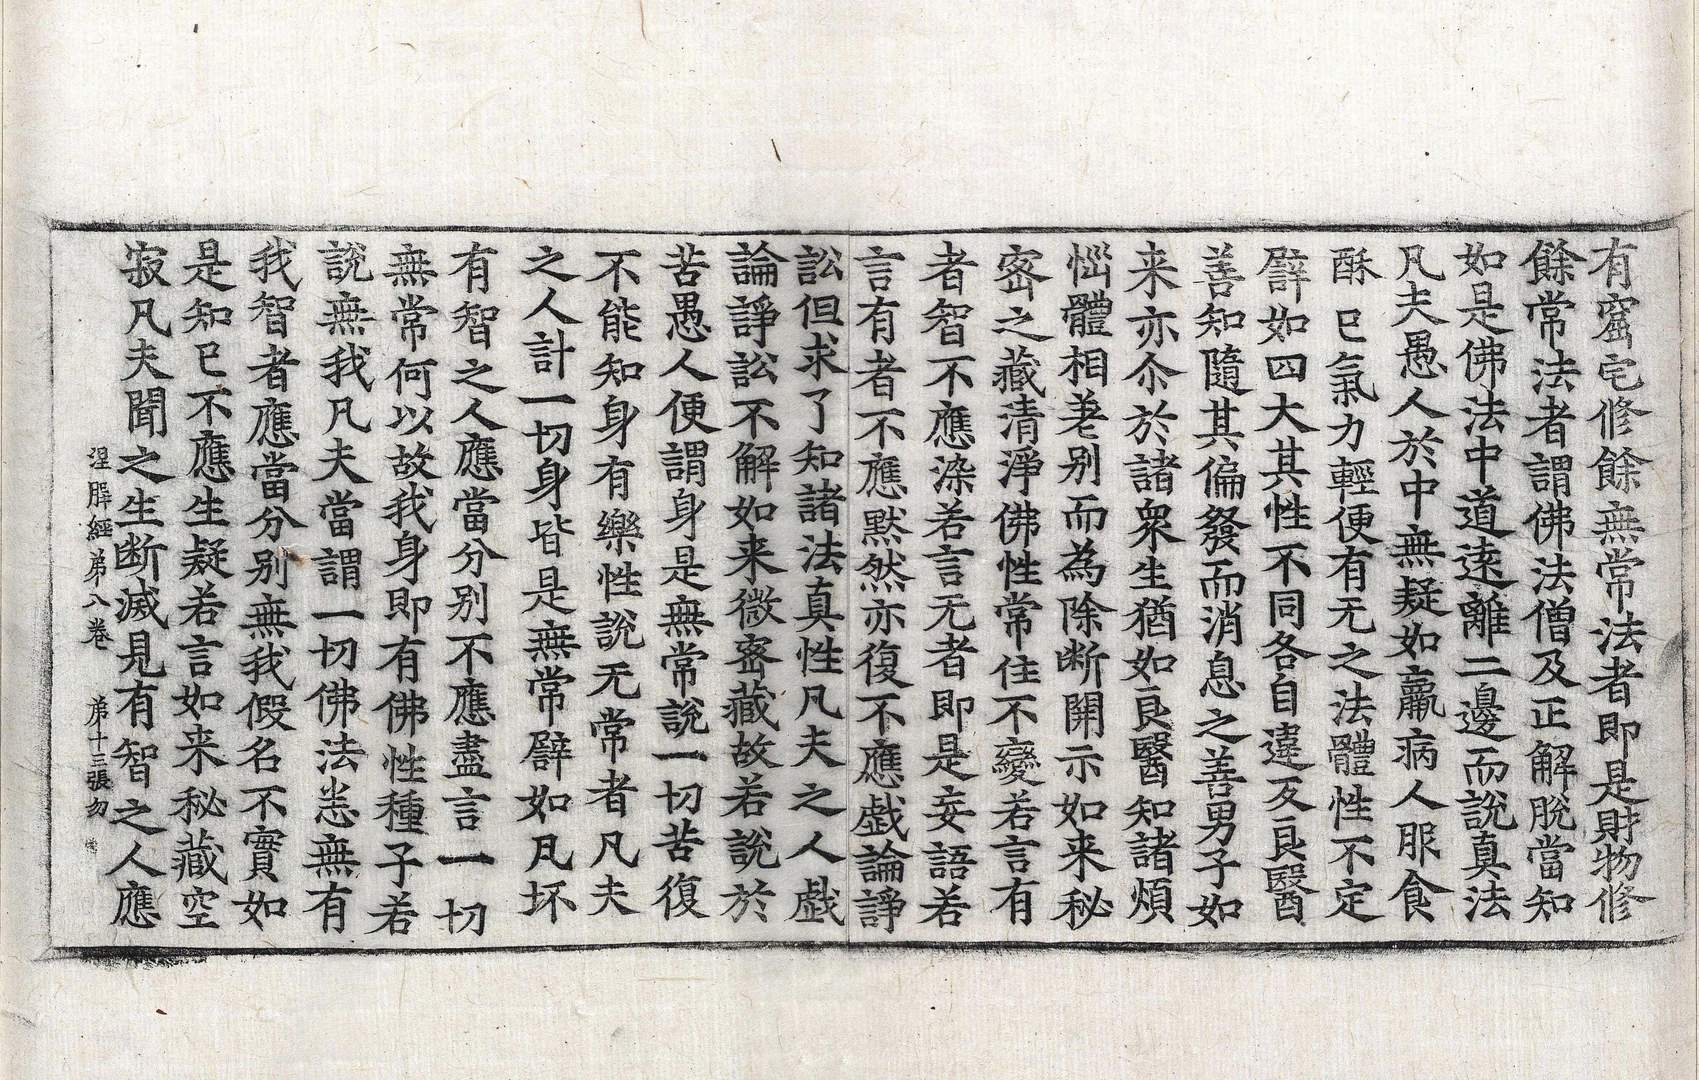 有窟宅修餘無常法者即是財物修
餘常法者謂佛法僧及正解脫當知
如是佛法中道遠離二邊而說真法
凡夫愚人於中無疑如羸病人服食
酥已氣力輕便有无之法體性不定
譬如四大其性不同各自違反良醫
善知隨其偏發而消息之善男子如
来亦尒於諸衆生猶如良醫知諸煩
惱體相差別而為除断開示如来秘
密之藏清淨佛性常住不變若言有
者智不應染若言无者即是妄語若
言有者不應默然亦復不應戲論諍
訟但求了知諸法真性凡夫之人戲
論諍訟不解如来微密藏故若說於
苦愚人便謂身是無常說一切苦復
不能知身有樂性說无常者凡夫
之人計一切身皆是無常譬如凡坏
有智之人應當分別不應盡言一切
無常何以故我身即有佛性種子若
說無我凡夫當謂一切佛法悉無有
我智者應當分別無我假名不實如
是知已不應生疑若言如来秘藏空
寂凡夫聞之生断滅見有智之人應
涅槃經弟八卷 弟十三張 勿